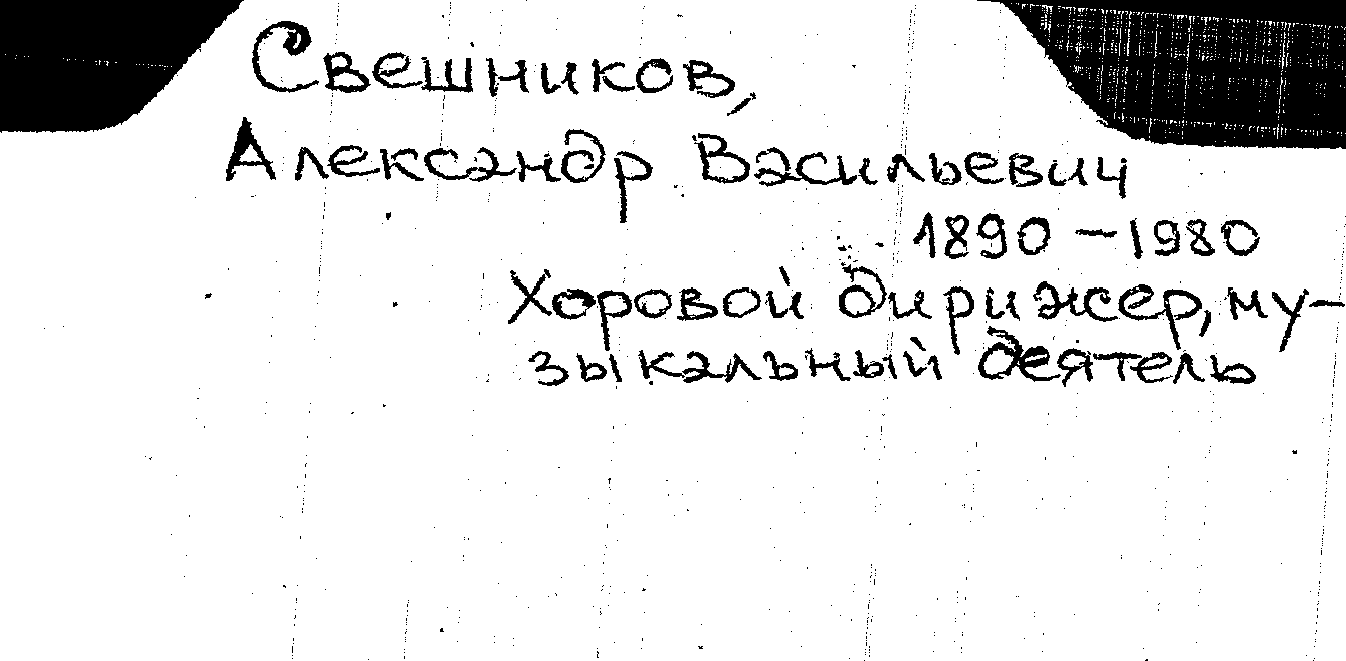 Свешников,
Александр Васильевич
1890 – 1980
Хоровой дирижер, му-
зыкальный деятель